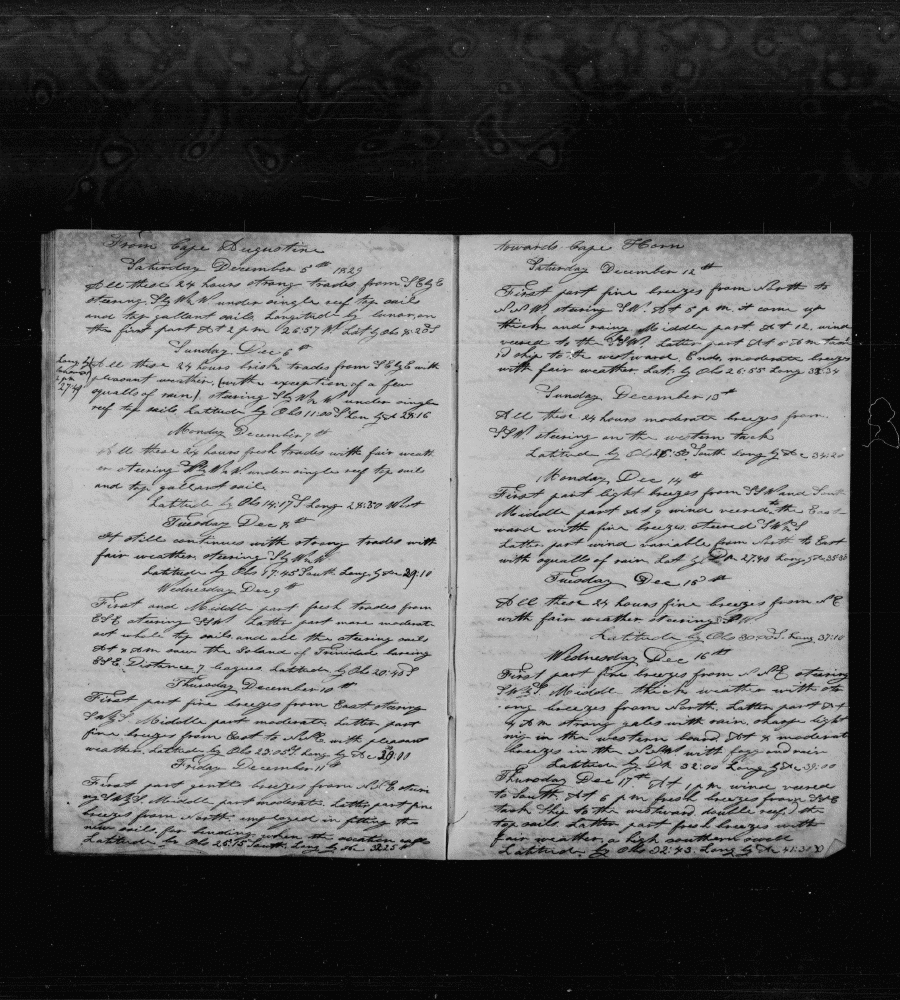 From Cape Augustine
Saturday December 5th 1829
All these 24 hours strong trades from SEbyE
steering SbyWW under single reef top sails
and top gallant sails. Longitude by lunar, on
the first part At 2 pm 26:57 W Lat by Obs 8:20S
Sunday Dec 6th
All these 24 hours brisk trades from SEbyE with
pleasant weather, (with the exception of a few
squalls of rain) steering SbyW½W under single
reef top sails Latitude by Obs 11:00 S Lon by Ac 28:16
Long by
2 pm
27:49
Monday December 7th
All these 24 hours fresh trades with fair weath
er steering under single reef top sails
and top gallant sails
Latitude by Obs 14:17 S Long 28:50 West
Tuesday Dec 8th
It still continues with strong trades with
fair weather steering SbyW½W
Latitude by Obs 17:45 South Long by Ac 29:10
Wednesday Dec 9th
First and Middle part fresh trades from
ESE steering SSW Latter part more moderate
out whole top sails and all the steering sails
At 4 Am saw the Island of Trinidade bearing
ESE Distance 7 leagues Latitude by Obs 20:40 S
Thursday December 10th
First part fine breezes from East steering
SWbS. Middle part moderate, latter part
fine breezes from East to NNE with pleasant
weather. Latitude by Obs 23:05 S Long by Ac 29:00
Friday December 11th
First part gentle breezes from NNE steeri
ng SWbS Middle part moderate Latter part fine
breezes from North. employed in fitting the
new sails for bending when the weather
Latitude by Obs 25:15 South. Long by Ac 32:25
towards Cape Horn
Saturday December 12th
First part fine breezes from North to
NNW. steering SW. At 5 pm it come up
thick and rainy Middle part At 12, wind
veered to the SSW. Latter part At 6 Am tack
d ship to the westward. Ends moderate breezes
with fair weather. Lat. by Obs 26:55 Long 33:34
Sunday December 13th
All these 24 hours moderate breezes from
SSW. steering on the western tack
Latitude by Obs 26:50 South Long by Ac 34:20
Monday Dec 14th
First part light breezes from SSW and South
Middle part At 9 wind veered to the East-
ward with fine breezes, steered SWbS
Latter part wind variable from North to East
with squalls of rain Lat by DR 27:40 Long by Ac 35:30
Tuesday Dec 15th
All these 24 hours fine breezes from NE
with fair weather steering SW
Latitude by Obs 30:00 S. Long 37:10
Wednesday Dec 16th
First part fine breezes from NNE steering
SWbS Middle thick weather with str
ong breezes from North. Latter part At
4 Am strong gales with rain, sharp light
ning in the western board. At 8 moderate
breezes in the NNW with fogg and rain
Latitude by DR 32:00 Long by Ac 39:00
Thursday Dec 17th. At 1 pm wind veered
to South. At 6 pm fresh breezes from SSE
tack ship to the westward. double reefd the
top sails latter part fresh breezes with
fair weather, a high southern swell
Latitude by Obs 32:43. Long by Ac 41:30